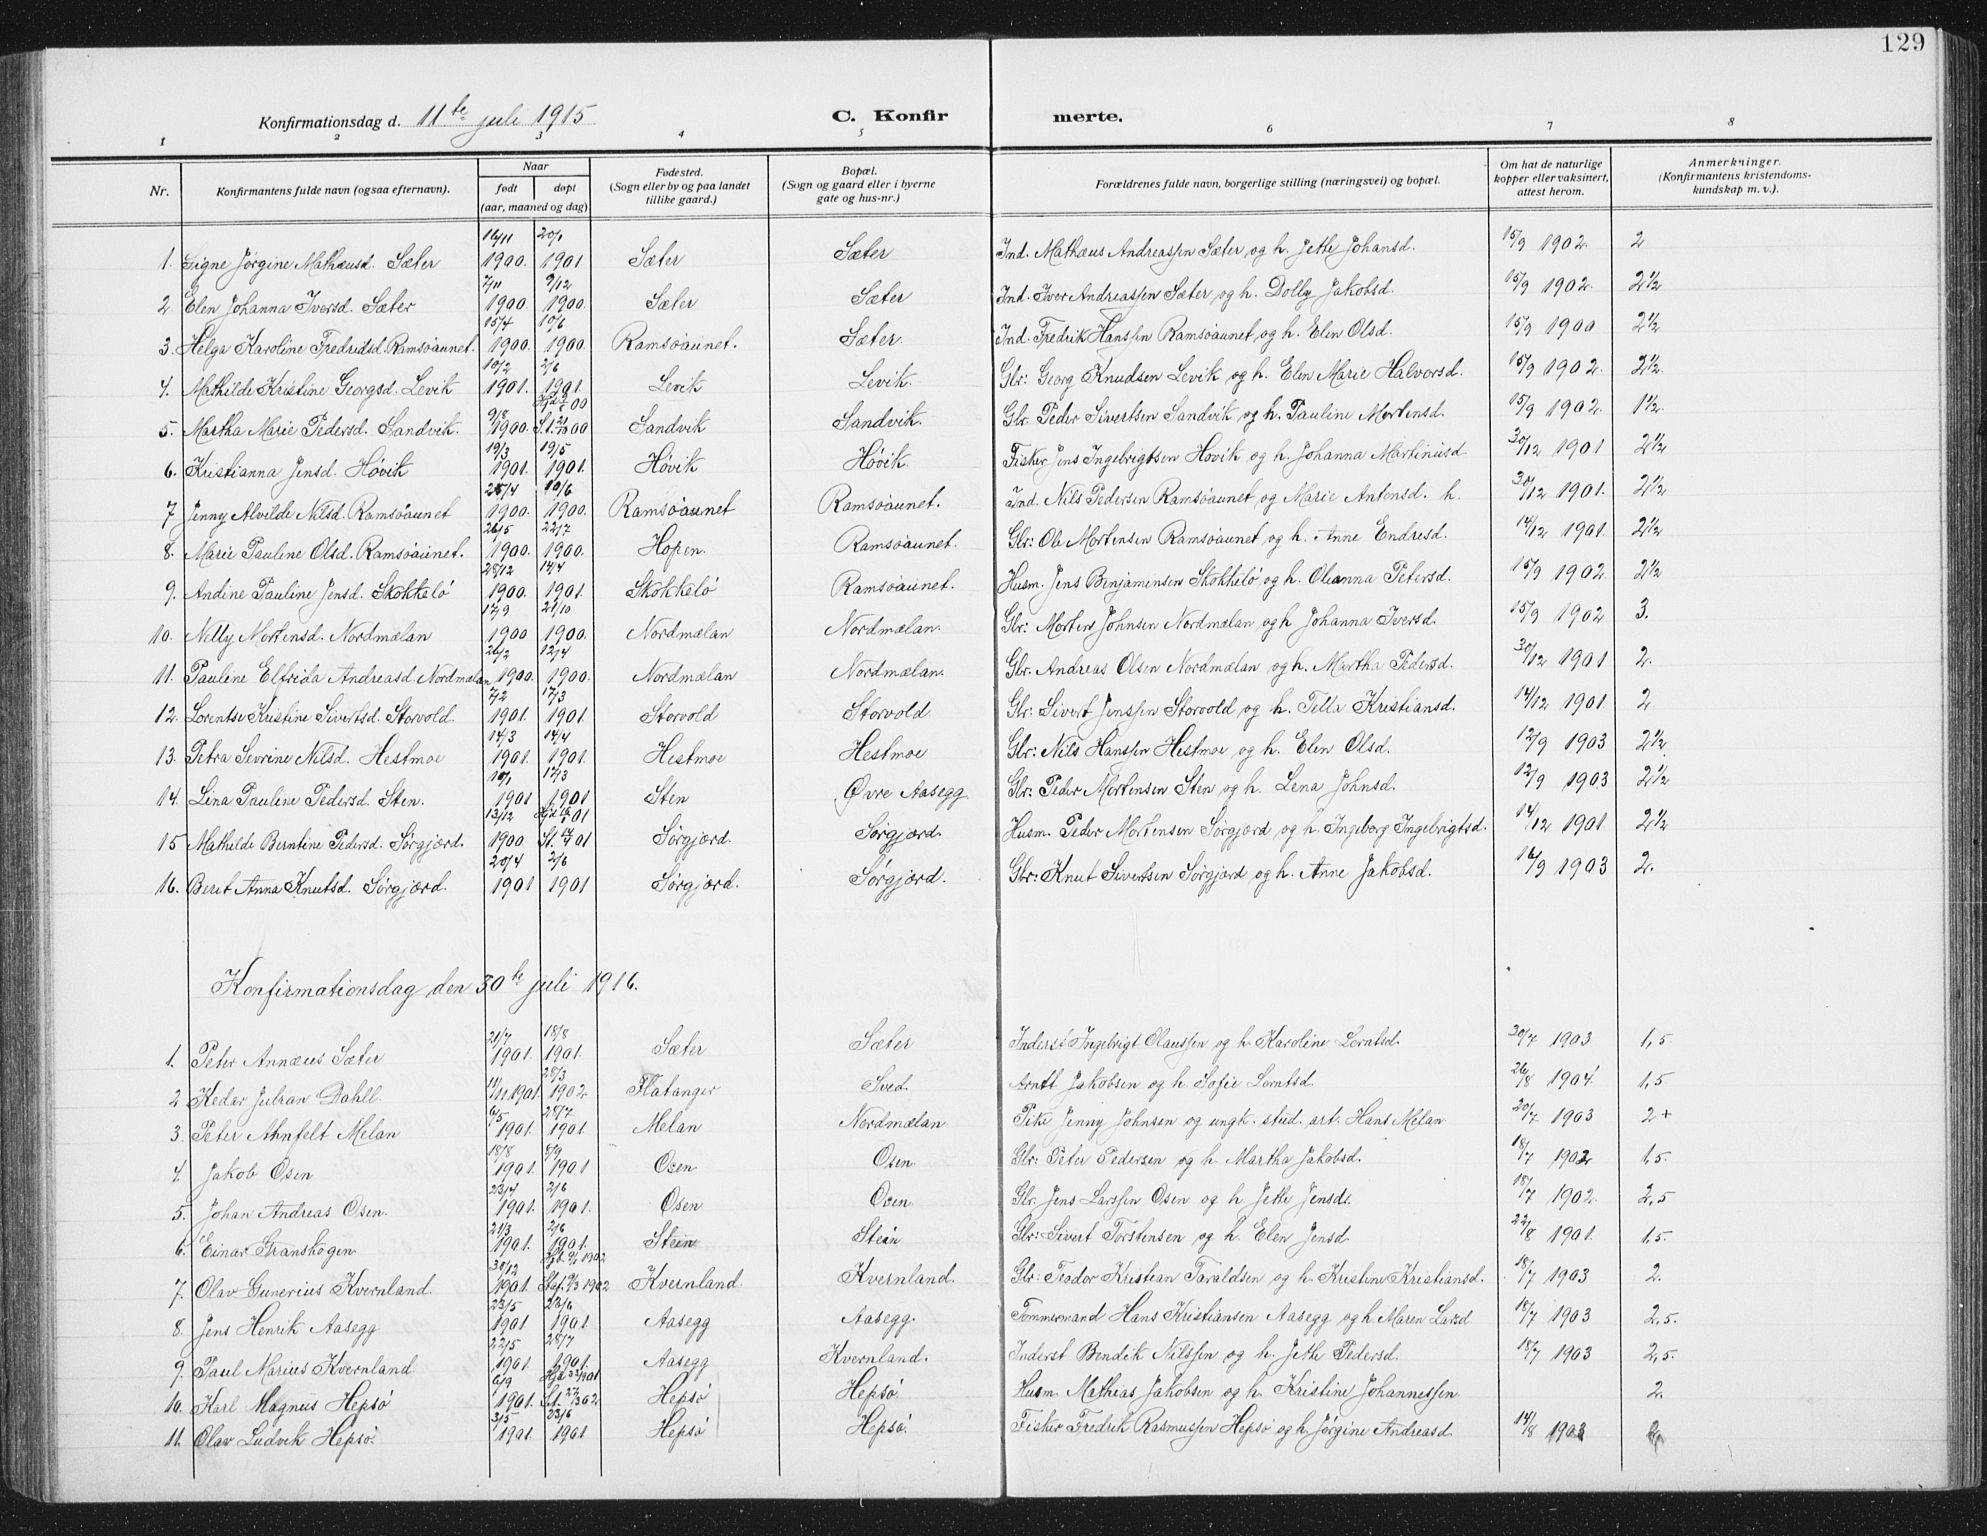 129
Konfirmationsdag d. 11te juli 1915 C. Konfirmerte.
1 2 3 4 5 6 7 8
Nr. Konfirmantens fulde navn (ogsaa efternavn). Naar født døpt (aar, maaned og dag) Fødested. (Sogn eller by og paa landet tillike gaard.) Bopæl. (Sogn og gaard eller i byerne gate og hus-nr.) Forældrenes fulde navn, borgerlige stilling (næringsvei) og bopæl. Om hat de naturlige kopper eller vaksinert, attest herom. Anmerkninger. (Konfirmantens kristendomskundskap m. v.).
1. Signe Jørgine Mathæusd. Sæter 16/11 1900. 20/1 1901 Sæter Sæter Ind. Mathæus Andreassen Sæter og h. Jethe Johansd. 15/9 1902. 2
2 Elen Johanna Iversd. Sæter 7/11 1900 9/12 1900. Sæter Sæter Ind. Iver Andreassen Sæter og h. Dolly Jakobsd. 15/9 1902. 2½
3. Helga Karoline Fredriksd. Ramsøaunet. 15/4 1900. 10/6 1900. Ramsøaunet. Sæter. Ind. Fredrik Hanssen Ramsøaunet og h. Elen Olsd. 15/9 1900 2½
4. Mathilde Kristine Georgsd. Levik 10/2 1901. 2/6 1901 Levik Levik. Gbr: Georg Knudsen Levik og h. Elen Marie Halvorsd. 15/9 1902. 2½.
5. Martha Marie Pedersd. Sandvik. 9/8 1900. St. 21/10 00 Sandvik Sandvik. Gbr. Peder Sivertsen Sandvik og h. Pauline Mortensd. 15/9 1902. 1½.
6. Kristianna Jensd. Høvik 19/3 1901. 19/5 1901. Høvik Høvik. Fisker Jens Ingebrigtsen Høvik og h. Johanna Martinusd 30/12 1901 2½
7 Jenny Alvilde Nilsd. Ramsøaunet 25/4 1900. 10/6 1900. Ramsøaunet Ramsøaunet. Ind. Nils Pedersen Ramsøaunet og Marie Antonsd. h. 30/12 1901. 2½
8. Marie Pauline Olsd. Ramsøaunet. 26/5 1900. 22/7 1900. Hopen. Ramsøaunet. Gbr: Ole Mortensen Ramsøaunet og h. Anne Endresd. 14/12 1901. 2½
9. Andine Pauline Jensd. Skokkelø 28/12 1900. 14/4 1901. Skokkelø Ramsøaunet. Husm. Jens Benjaminsen Skokkelø og h. Oleanna Petersd. 15/9 1902. 2½
10. Nelly Mortensd. Nordmælan 17/9 1900 21/10 1900. Nordmælan Nordmælan. Gbr: Morten Johnsen Nordmælan og h Johanna Iversd. 15/9 1902 3.
11. Pauline Elfrida Andreasd. Nordmælan 26/2 1900. 12/4 1900. Nordmælan Nordmælan. Gbr. Andreas Olsen Nordmælan og h. Martha Pedersd. 30/12 1901 2.
12. Lorentse Kristine Sivertsd. Storvold. 7/2 1901. 17/3 1901. Storvold Storvold. Gbr: Sivert Jenssen Storvold og h. Tilla Kristiansd. 14/12 1901. 2.
13. Petra Sevrine Nilsd. Hestmoe 14/3 1901. 14/4 1901. Hestmoe Hestmoe Gbr: Nils Hanssen Hestmoe og h. Elen Olsd. 12/9 1903 2½
14. Lina Pauline Pedersd. Sten. 10/1 1901 17/3 1901 Sten Øvre Aasegg. Gbr: Peder Mortensen Sten og h. Lena Johnsd. 12/9 1903 2½
15 Mathilde Berntine Pedersd. Sørgjærd. 13/12 1900. St. 14/4 01 Sørgjærd. Sørgjærd. Husm. Peder Mortensen Sørgjærd og h. Ingeborg Ingebrigtsd. 14/12 1901 2½
16. Berit Anna Knutsd. Sørgjærd. 20/4 1901 2/6 1901 Sørgjærd. Sørgjærd. Gbr: Knut Sivertsen Sørgjærd og h. Anne Jakobsd. 16/9 1903 2.
Konfirmationsdag den 30te juli 1916.
1. Peter Annæus Sæter 21/7 1901. 18/8 1901. Sæter Sæter Inderst Ingebrigt Olaussen og h. Karoline Lorntsd. 30/7 1903 1,5
2 Kedar Julian Dahll. 11/11 1901. 28/3 1902. Flatanger Sved. Arntt Jakobsen og h. Sofie Lorntsd. 26/8 1904. 1,5
3. Peter Ahnfelt Melan 6/5 1901. 28/7 1901. Melan Nordmælan Pike Jenny Johnsen og ungk. stud. art. Hans Melan 20/7 1903 2+
4. Jakob Osen 18/8 1901. 8/9 1901 Osen Osen. Gbr: Peter Pedersen og h. Martha Jakobsd. 18/7 1902 1,5.
5. Johan Andreas Osen. 23/4 1901. 2/6 1901. Osen Osen. Gbr. Jens Larssen Osen og h. Jethe Jensdt. 18/7 1902. 2,5
6. Einar Granskogen 21/3 1901. 2/6 1901. Stein Stein Gbr: Sivert Torstensen og h. Elen Jensd. 22/8 1901. 1,5.
7. Olav Gunerius Kvernland. 30/12 1901. Hjd. 9/1 1902 Staf. 9/3 1902 Kvernland. Kvernland. Gbr: Teodor Kristian Taraldsen og h. Kristine Kristiansd. 18/7 1903 2.
8. Jens Henrik Aasegg 23/5 1901 23/6 1901 Aasegg Aasegg. Tømmermand Hans Kristiansen Aasegg og h. Maren Larsd 18/7 1903 2,5.
9. Paul Marius Kvernland 22/5 1901. 28/7 1901. Aasegg Kvernland. Inderst Bendik Nilssen og h. Jethe Pedersd. 18/7 1903 2,5.
10. Karl Magnus Hepsø 6/9 1901. Hepsø Hepsø. Husm. Mathias Jakobsen og h. Kristine Johannessen 2.
11. Olav Ludvik Hepsø. 3/5 1901. 23/6 1901 Hepsø Hepsø. Fisker Fredrik Rasmussen Hepsø og h. Jørgine Andreasd. 14/8 1903